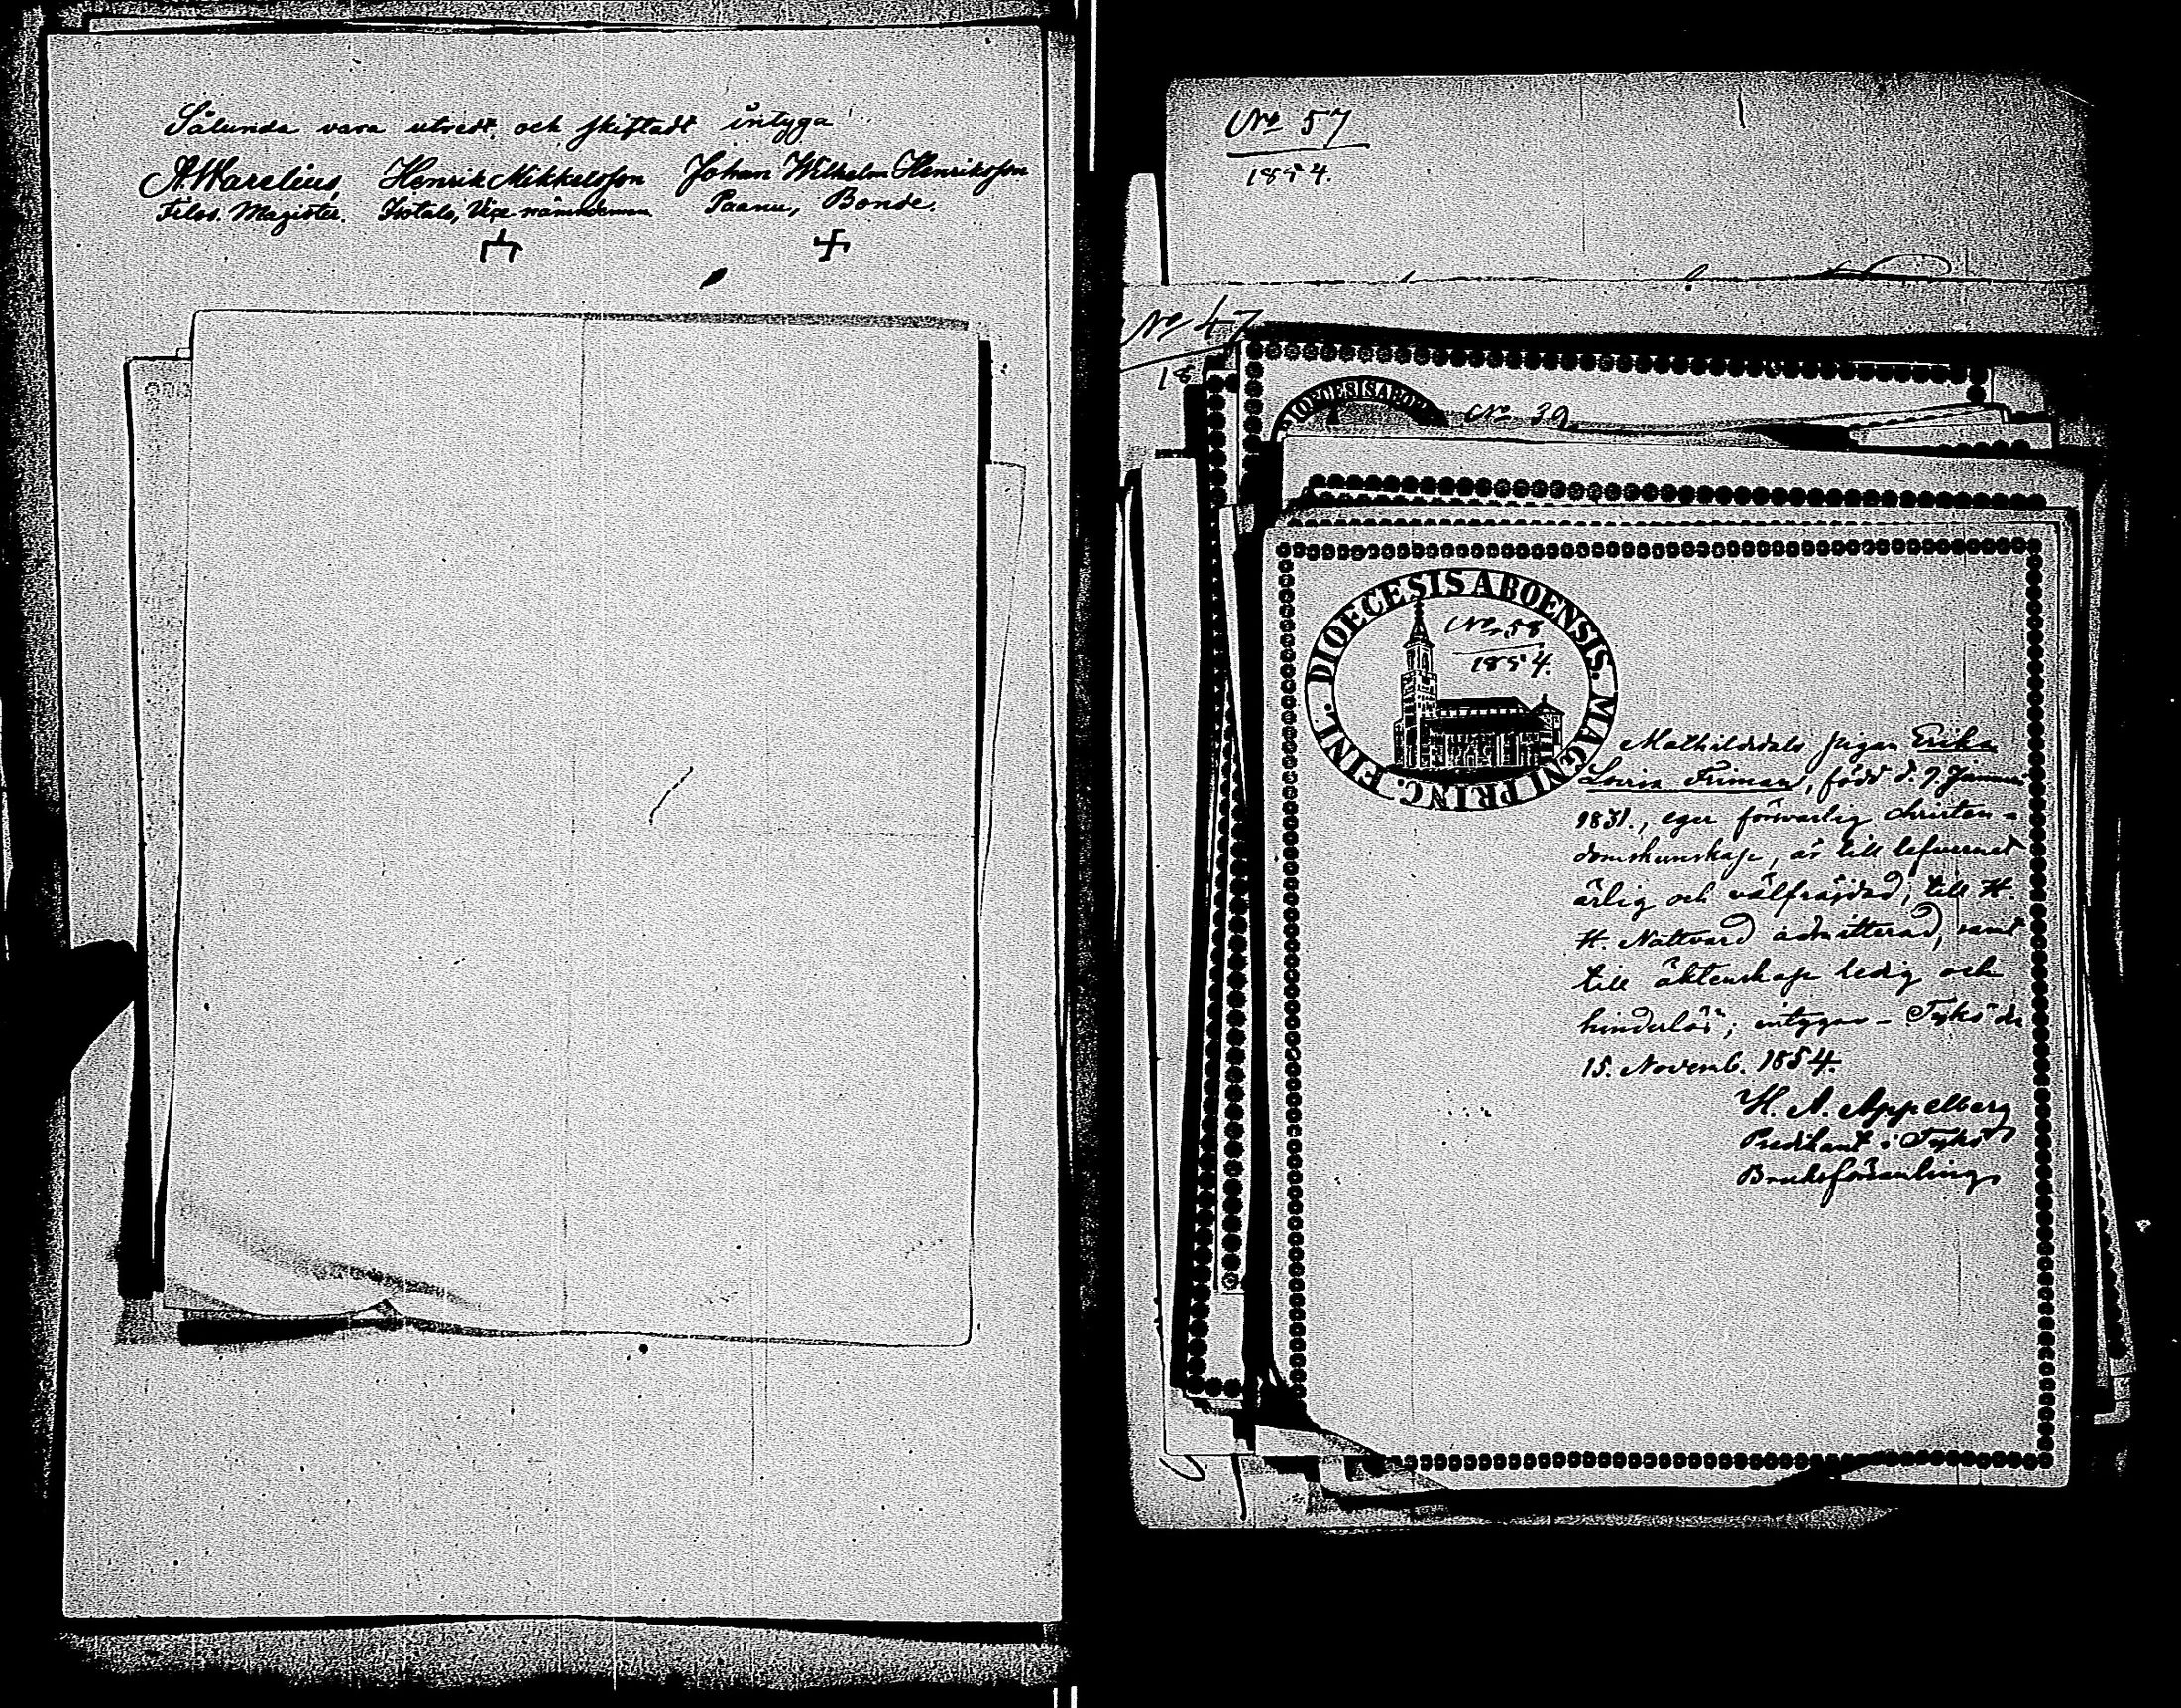 Sålunda vara utredt och skiftadt intyga
A. Warelius, Henrik Mikkelsson Johan Wilhelm Henriksson
Filos. Magister. Isotalo, Vice nämndeman Paanu, Bonde.
No 57
1854.
No 47
18
DIOECESIS ABOE
No 39
DIOECESIS ABOENSIS. MAGNI PRINC. FINL.
No 58
1854.
Mathildedals pigan Erika
Lovisa Friman, född d. 9 Januari
1831., eger försvarlig christen-
domskunskap, är till lefvernet
ärlig och välfräjdad, till H.
H. Nattvard admitterad, samt
till äktenskap ledig och
hinderlös; intygas - Tykö de
15. Novemb. 1854.
H. A. Appelberg
Predikant i Tykö
Bruksförsamling